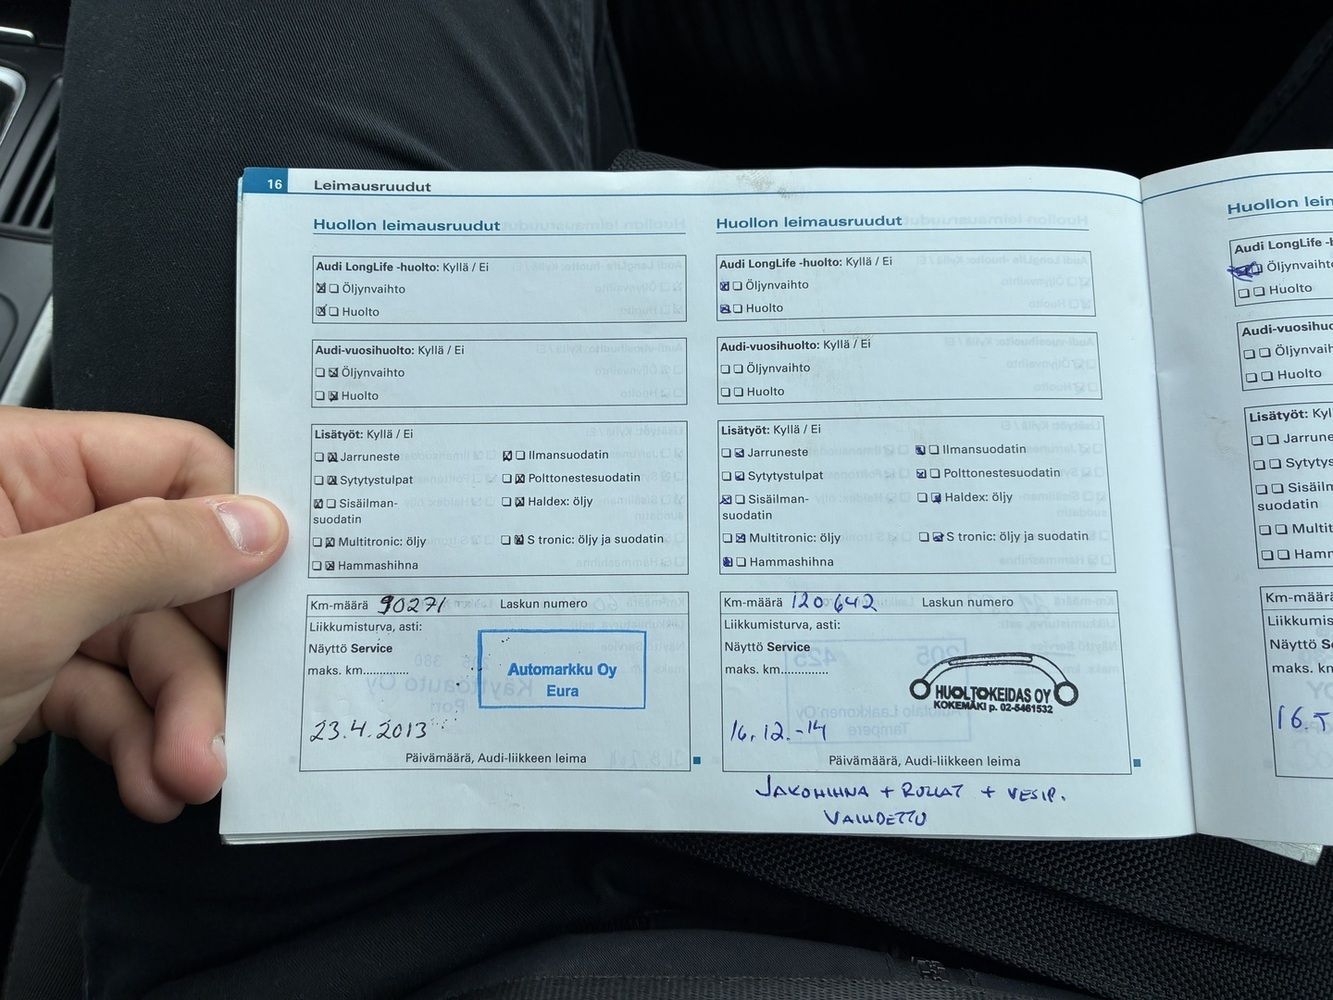 16 Leimausruudut
Huollon leimausruudut
Audi LongLife -huolto: Kyllä / Ei
Öljynvaihto
Huolto
Audi-vuosihuolto: Kyllä / Ei
Öljynvaihto
Huolto
Lisätyöt: Kyllä / Ei
Jarruneste
Ilmansuodatin
Sytytystulpat
Polttonestesuodatin
Sisäilman-
suodatin
Haldex: öljy
Multitronic: öljy
S tronic: öljy ja suodatin
Hammashihna
Km-määrä 90271 Laskun numero
Liikkumisturva, asti:
Näyttö Service
maks. km..............
Automarkku Oy
Eura
23.4.2013
Päivämäärä, Audi-liikkeen leima
Huollon leimausruudut
Audi LongLife -huolto: Kyllä / Ei
Öljynvaihto
Huolto
Audi-vuosihuolto: Kyllä / Ei
Öljynvaihto
Huolto
Lisätyöt: Kyllä / Ei
Jarruneste
Ilmansuodatin
Sytytystulpat
Polttonestesuodatin
Sisäilman-
suodatin
Haldex: öljy
Multitronic: öljy
S tronic: öljy ja suodatin
Hammashihna
Km-määrä 120 642 Laskun numero
Liikkumisturva, asti:
Näyttö Service
maks. km..............
HUOLTOKEIDAS OY
KOKEMÄKI p. 02-5461532
16.12.-14
Päivämäärä, Audi-liikkeen leima
JAKOHIHNA + RULLAT + VESIP.
VAIHDETTU
Huollon lein
Audi LongLife -h
Öljynvaihto
Huolto
Audi-vuosihuolto
Öljynvaih
Huolto
Lisätyöt: Kyl
Jarrune
Sytytys
Sisäilm
suodatin
Multit
Hamm
Km-määrä
Liikkumistur
Näyttö Se
maks. km
16.